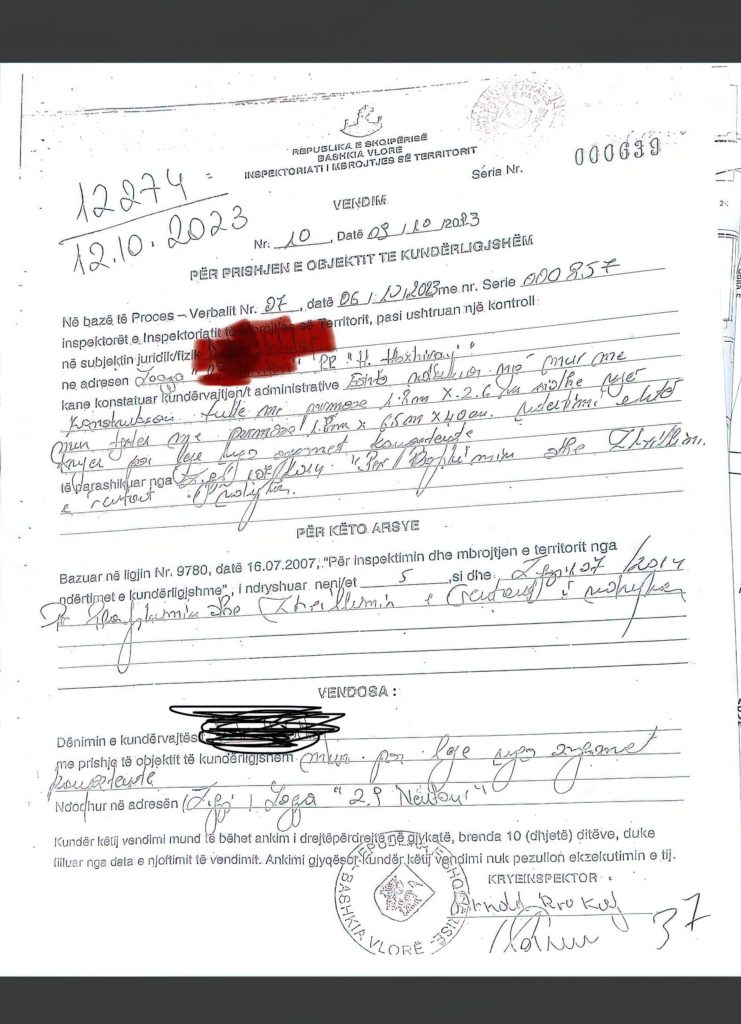 REPUBLIKA E SHQIPËRISË
BASHKIA VLORE
INSPEKTORIATI I MBROJTJES SË TERRITORIT
Séria Nr. 000639
12274
12.10.2023
VENDIM
Nr. 10, Datë 09/10/2023
PËR PRISHJEN E OBJEKTIT TE KUNDËRLIGJSHËM
Në bazë të Proces – Verbalit Nr. 27, datë 06/10/2023 me nr. Serie 000857
inspektorët e Inspektoriatit të Mbrojtjes së Territorit, pasi ushtruan një kontroll
në subjektin juridik/fizik
ne adresen Lagja "RR "H. Hoxhivaj"
kane konstatuar kundërvajtjen/t administrative Eshtë ndërtuar një mur me
konstruksion tulle me permasa 1.8m x 2.6 m sidhe një
mur me permasa 1.8m x 65m x 40cm. ndërtimi eshtë
pa leje nga organet kompetente
të parashikuar nga Ligji 107/2014 "Për Planifikimin dhe Zhvillim.
e territorit i ndryshuar.
PËR KËTO ARSYE
Bazuar në ligjin Nr. 9780, datë 16.07.2007, "Për inspektimin dhe mbrojtjen e territorit nga
ndërtimet e kundërligjshme", i ndryshuar neni/et 5, si dhe Ligji 107/2014
Për Planifikimin dhe Zhvillimin e territorit i ndryshuar
VENDOSA :
Dënimin e kundërvajtës
me prishje të objektit të kundërligjshëm mur pa leje nga organet
kompetente
Ndodhur në adresën Lagja
Kundër këtij vendimi mund të bëhet ankim i drejtëpërdrejtë në gjykatë, brenda 10 (dhjetë) ditëve, duke
filluar nga data e njoftimit të vendimit. Ankimi gjyqësor kundër këtij vendimi nuk pezullon ekzekutimin e tij.
KRYEINSPEKTOR
BASHKIA VLORË
37